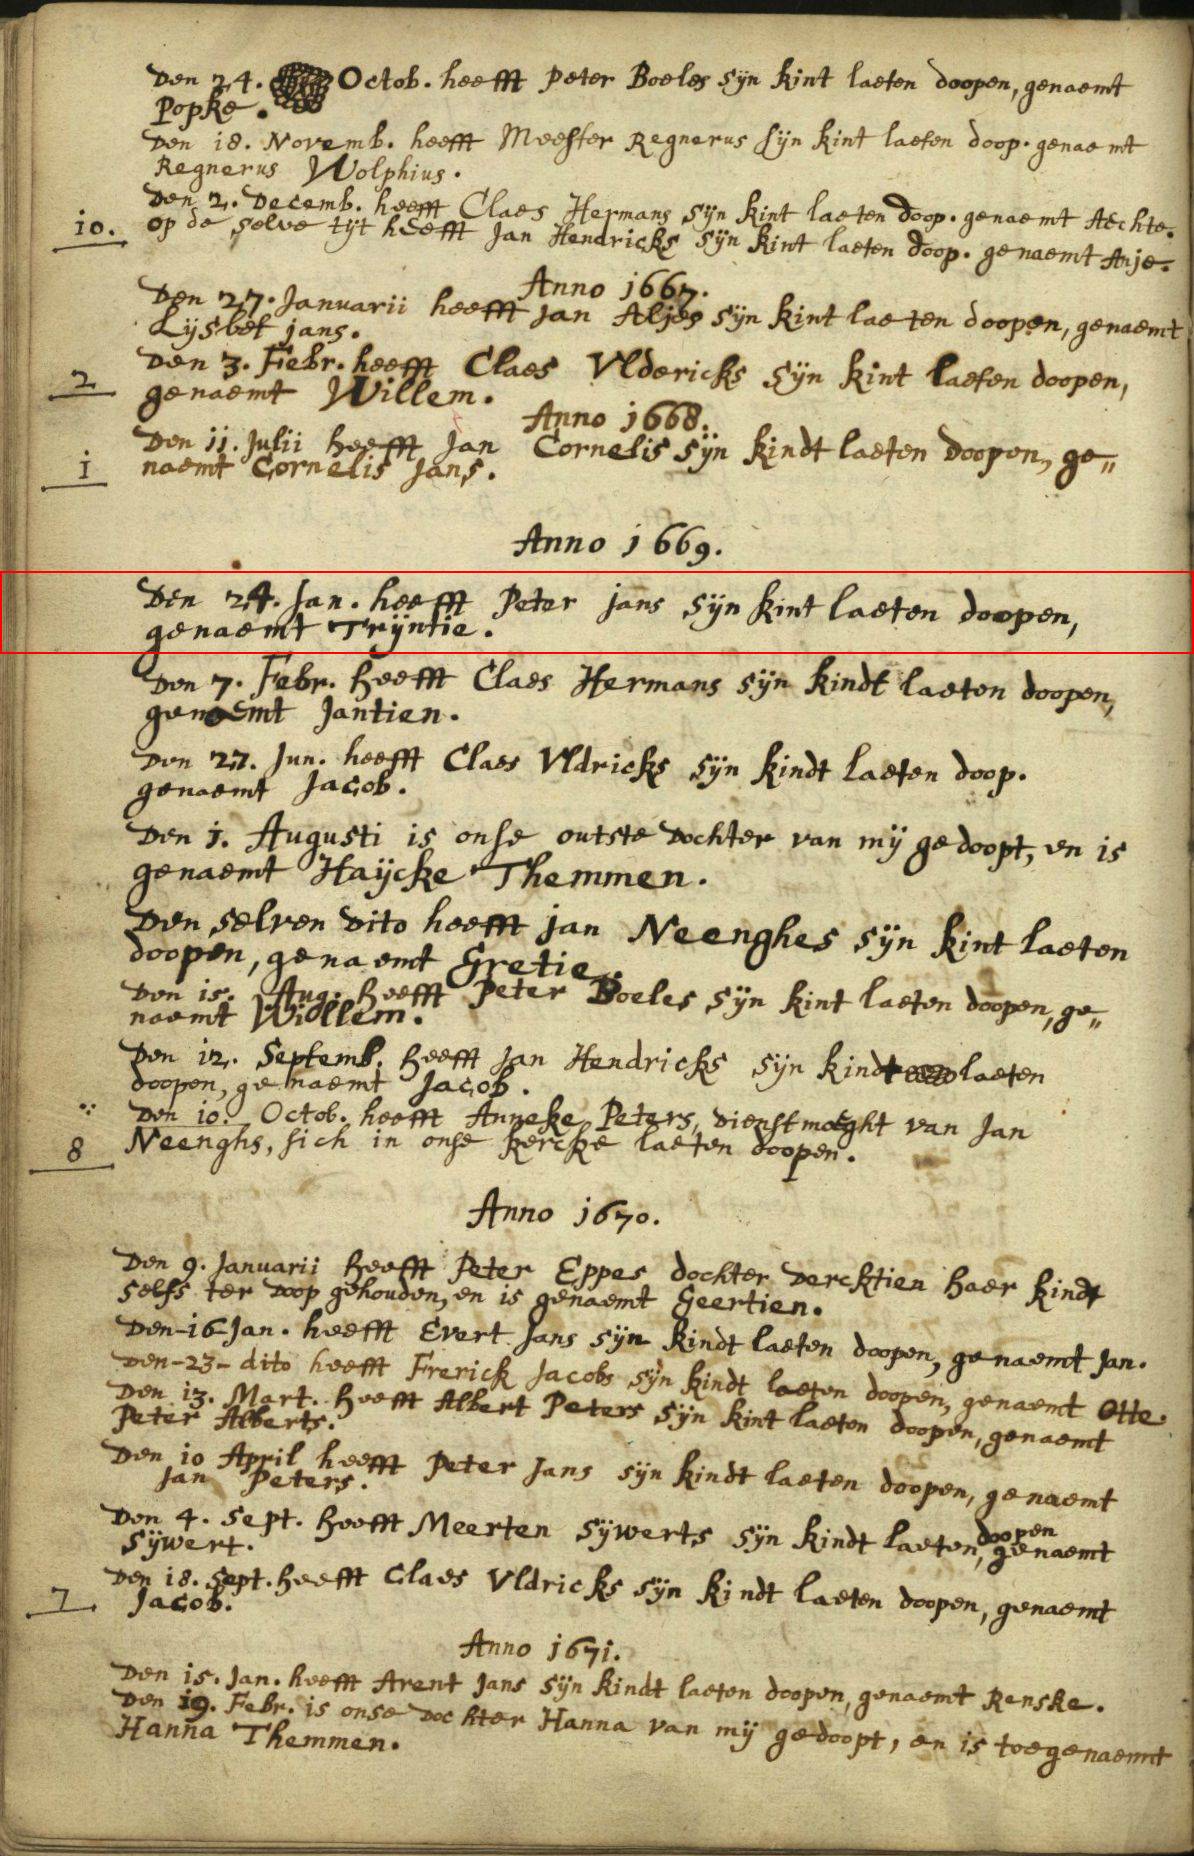 Den 24. Octob. heefft Peter Boeles sijn kint laeten doopen, genaemt
Popke.
Den 18. Novemb. heefft Meester Regnerus sijn kint laeten doop. genaemt
Regnerus Wolphius.
Den 2. Decemb. heefft Claes Hermans sijn kint laeten doop. genaemt Aechte.
10. op de selve tijt heefft Jan Hendricks sijn kint laeten doop. genaemt Anje.
Anno 1667.
Den 27. Januarii heefft Jan Aljes sijn kint laeten doopen, genaemt
Lijsbet jans.
Den 3. Febr. heefft Claes Vldericks sijn kint laeten doopen,
2 genaemt Willem.
Anno 1668.
Den 11. Julii heefft Jan Cornelis sijn kindt laeten doopen, ge„
1 naemt Cornelis Jans.
Anno 1669.
Den 24. Jan. heefft Peter jans sijn kint laeten doopen,
genaemt Trijntie.
Den 7. Febr. heefft Claes Hermans sijn kindt laeten doopen,
genaemt Jantien.
Den 27. Jun. heefft Claes Vldricks sijn kindt laeten doop.
genaemt Jacob.
Den 1. Augusti is onse outste Dochter van mij gedoopt, en is
genaemt Haijcke Themmen.
Den selven Dito heefft jan Neenghes sijn kint laeten
doopen, genaemt Gretie.
Den 15. Aug. heefft Peter Boeles sijn kint laeten doopen, ge„
naemt Willem.
Den 12. Septemb. heefft Jan Hendricks sijn kindt laeten
doopen, genaemt Jacob.
Den 10. Octob. heefft Anneke Peters, Dienstmaeght van Jan
8 Neenghs, sich in onse kercke laeten doopen.
Anno 1670.
Den 9. Januarii heefft Peter Eppes dochter Dercktien haer kindt
selfs ter Doop gehouden, en is genaemt Geertien.
Den-16-Jan. heefft Evert Jans sijn kindt laeten doopen, genaemt Jan.
Den-23-dito heefft Frerick Jacobs sijn kindt laeten doopen, genaemt Otte.
Den 13. Mart. heefft Albert Peters sijn kint laeten doopen, genaemt
Peter Alberts.
Den 10 April heefft Peter Jans sijn kindt laeten doopen, genaemt
Jan Peters.
Den 4. Sept. heefft Meerten Sijwerts sijn kindt laeten doopen, genaemt
Sijwert.
Den 18. Sept. heefft Claes Vldricks sijn kindt laeten doopen, genaemt
7 Jacob.
Anno 1671.
Den 15. Jan. heefft Arent Jans sijn kindt laeten doopen, genaemt Renske.
Den 19. Febr. is onse Dochter Hanna van mij gedoopt, en is toegenaemt
Hanna Themmen.